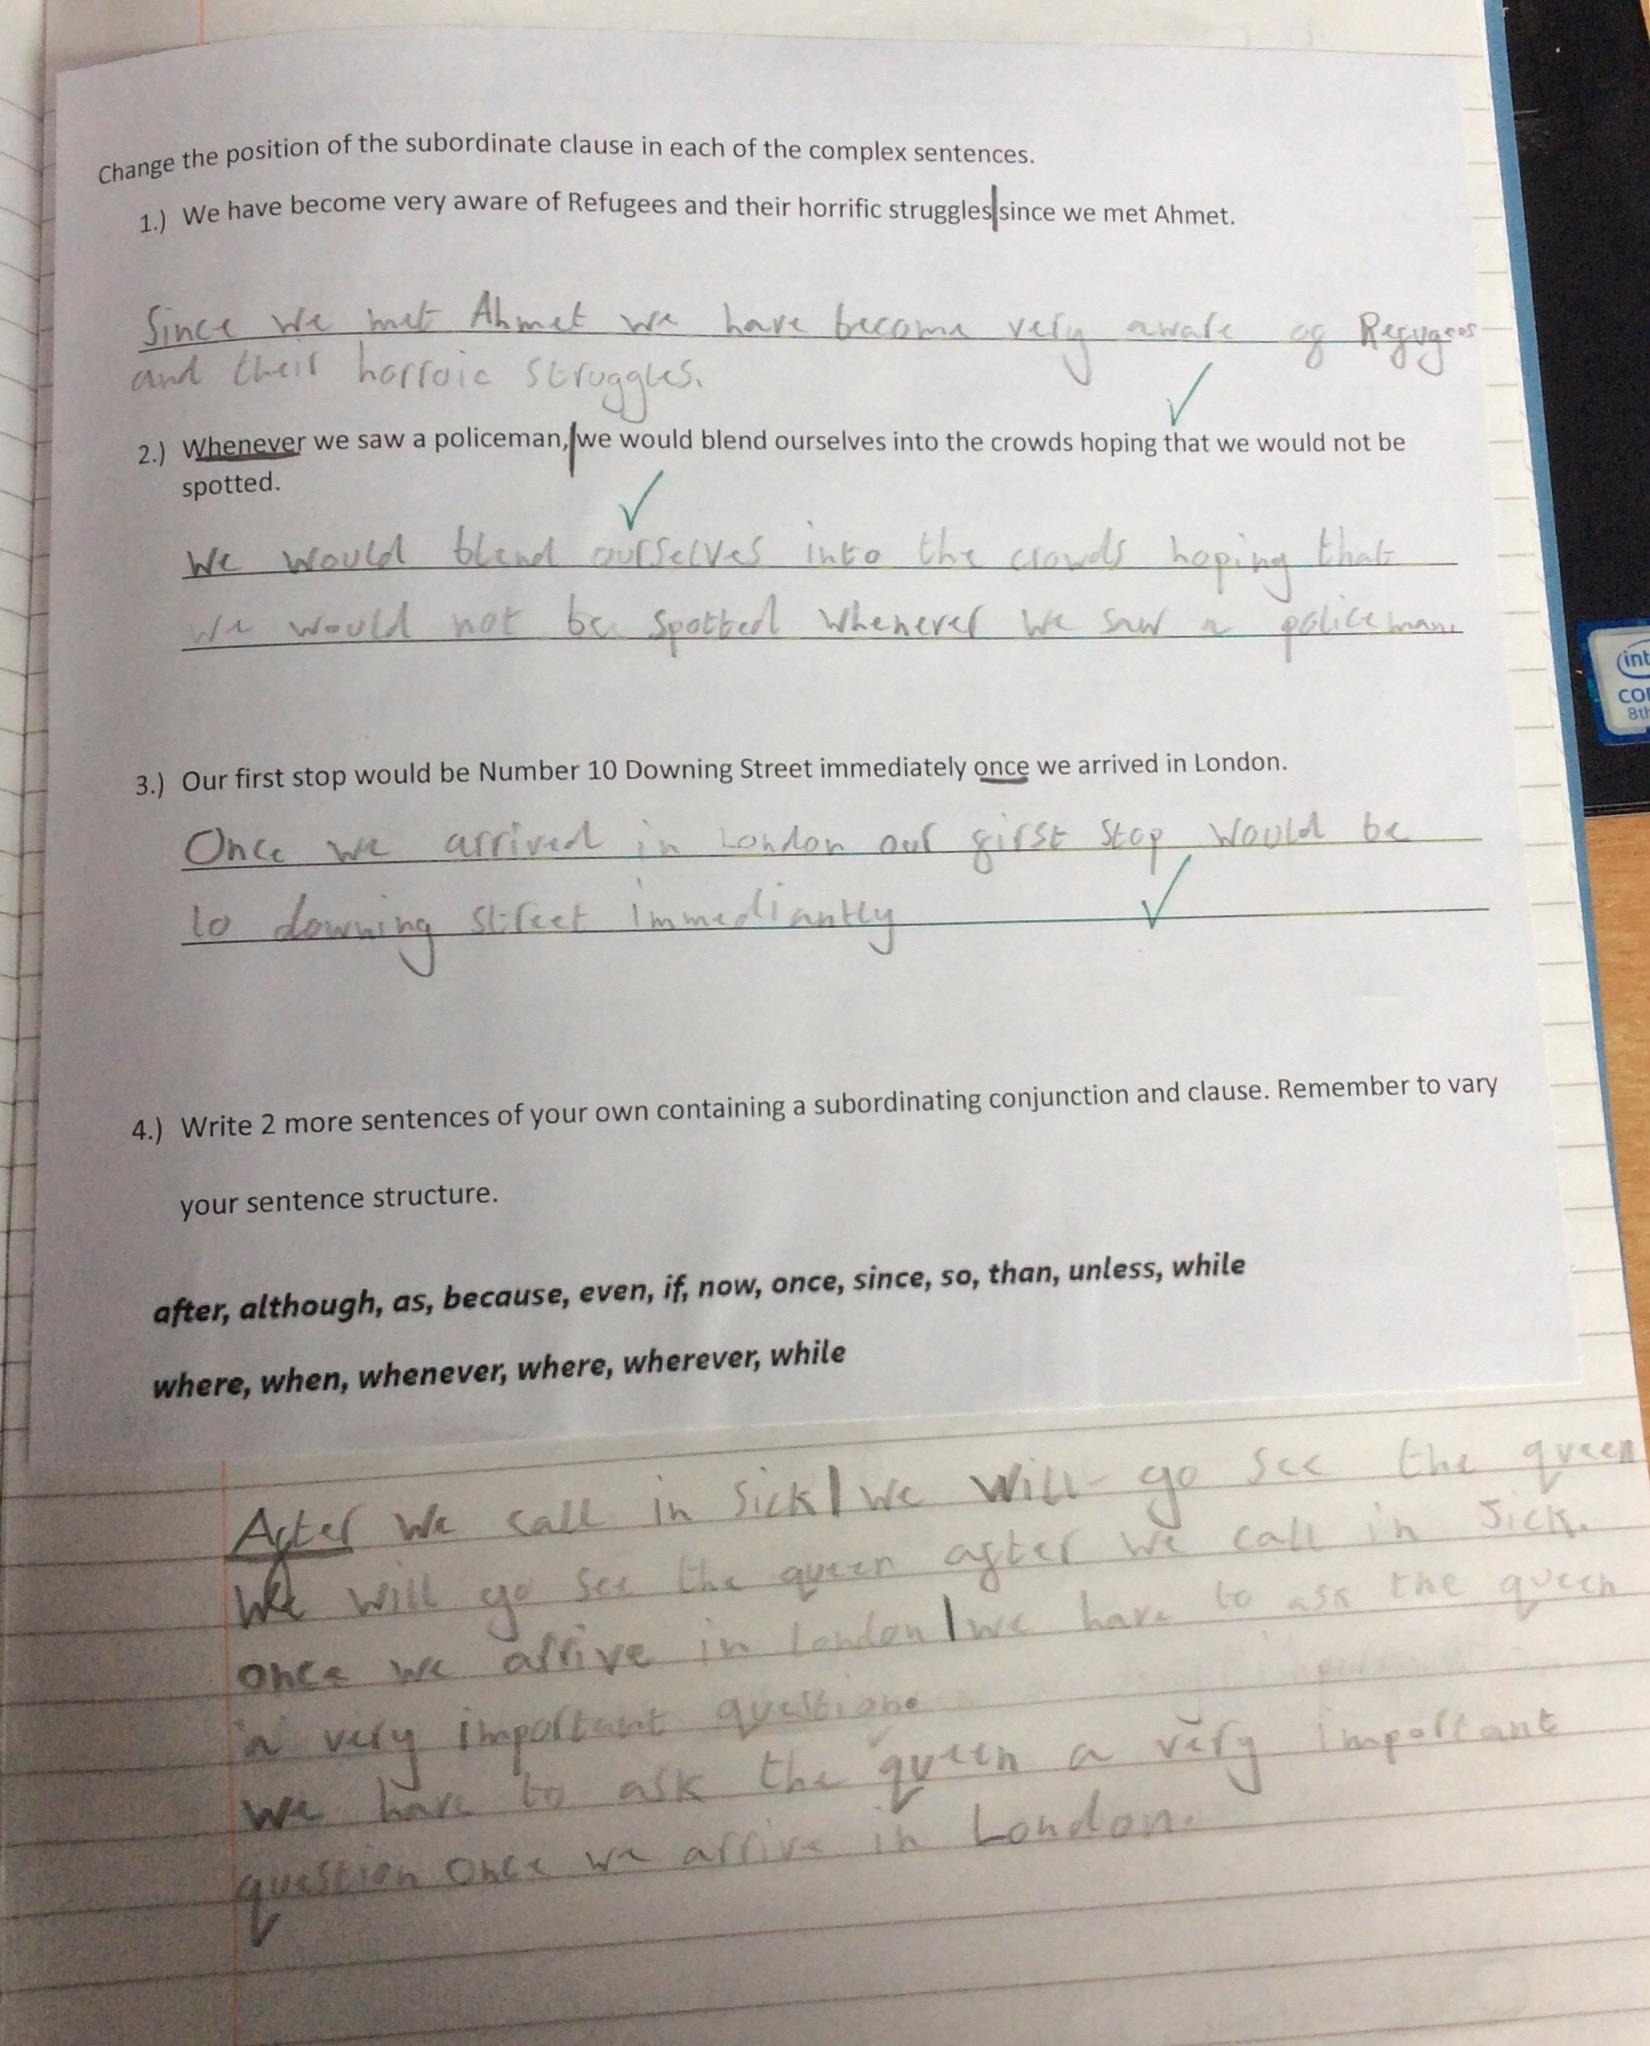 Change the position of the subordinate clause in each of the complex sentences.
1.) We have become very aware of Refugees and their horrific struggles|since we met Ahmet.
Since we met Ahmet we have become very aware of Refugees
and their horroic struggles.
2.) Whenever we saw a policeman,|we would blend ourselves into the crowds hoping that we would not be
spotted.
We would blend ourselves into the crowds hoping that
we would not be spotted whenever we saw a policeman.
3.) Our first stop would be Number 10 Downing Street immediately once we arrived in London.
Once we arrived in London our first stop would be
to downing street immediantly
4.) Write 2 more sentences of your own containing a subordinating conjunction and clause. Remember to vary
your sentence structure.
after, although, as, because, even, if, now, once, since, so, than, unless, while
where, when, whenever, where, wherever, while
After we call in sick|we will go see the queen
We will go see the queen after we call in sick.
once we arrive in London|we have to ask the queen
a very important question.
we have to ask the queen a very important
question once we arrive in London.
int
CO
8th